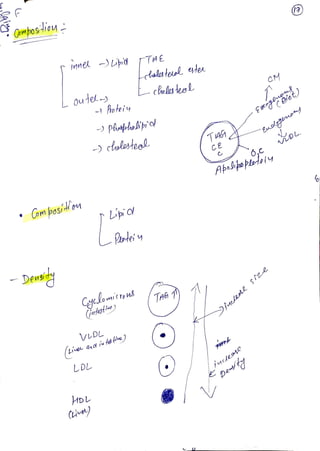 17
Composition :-
inner -> Lipid
TAE
cholesterol ester
cholesterol
outer ->
-> Protein
-> Phospholipid
-> cholesterol
CM
Exogenous
(Diet)
Endogenous
VLDL
TAG
CE
C
Apolipoprotein
• Composition
Lipid
Protein
- Density
Cyclomicrons
(intestine)
TAG ↑
increase size
VLDL
(Liver and intestine)
LDL
increase
Density
HDL
(Liver)